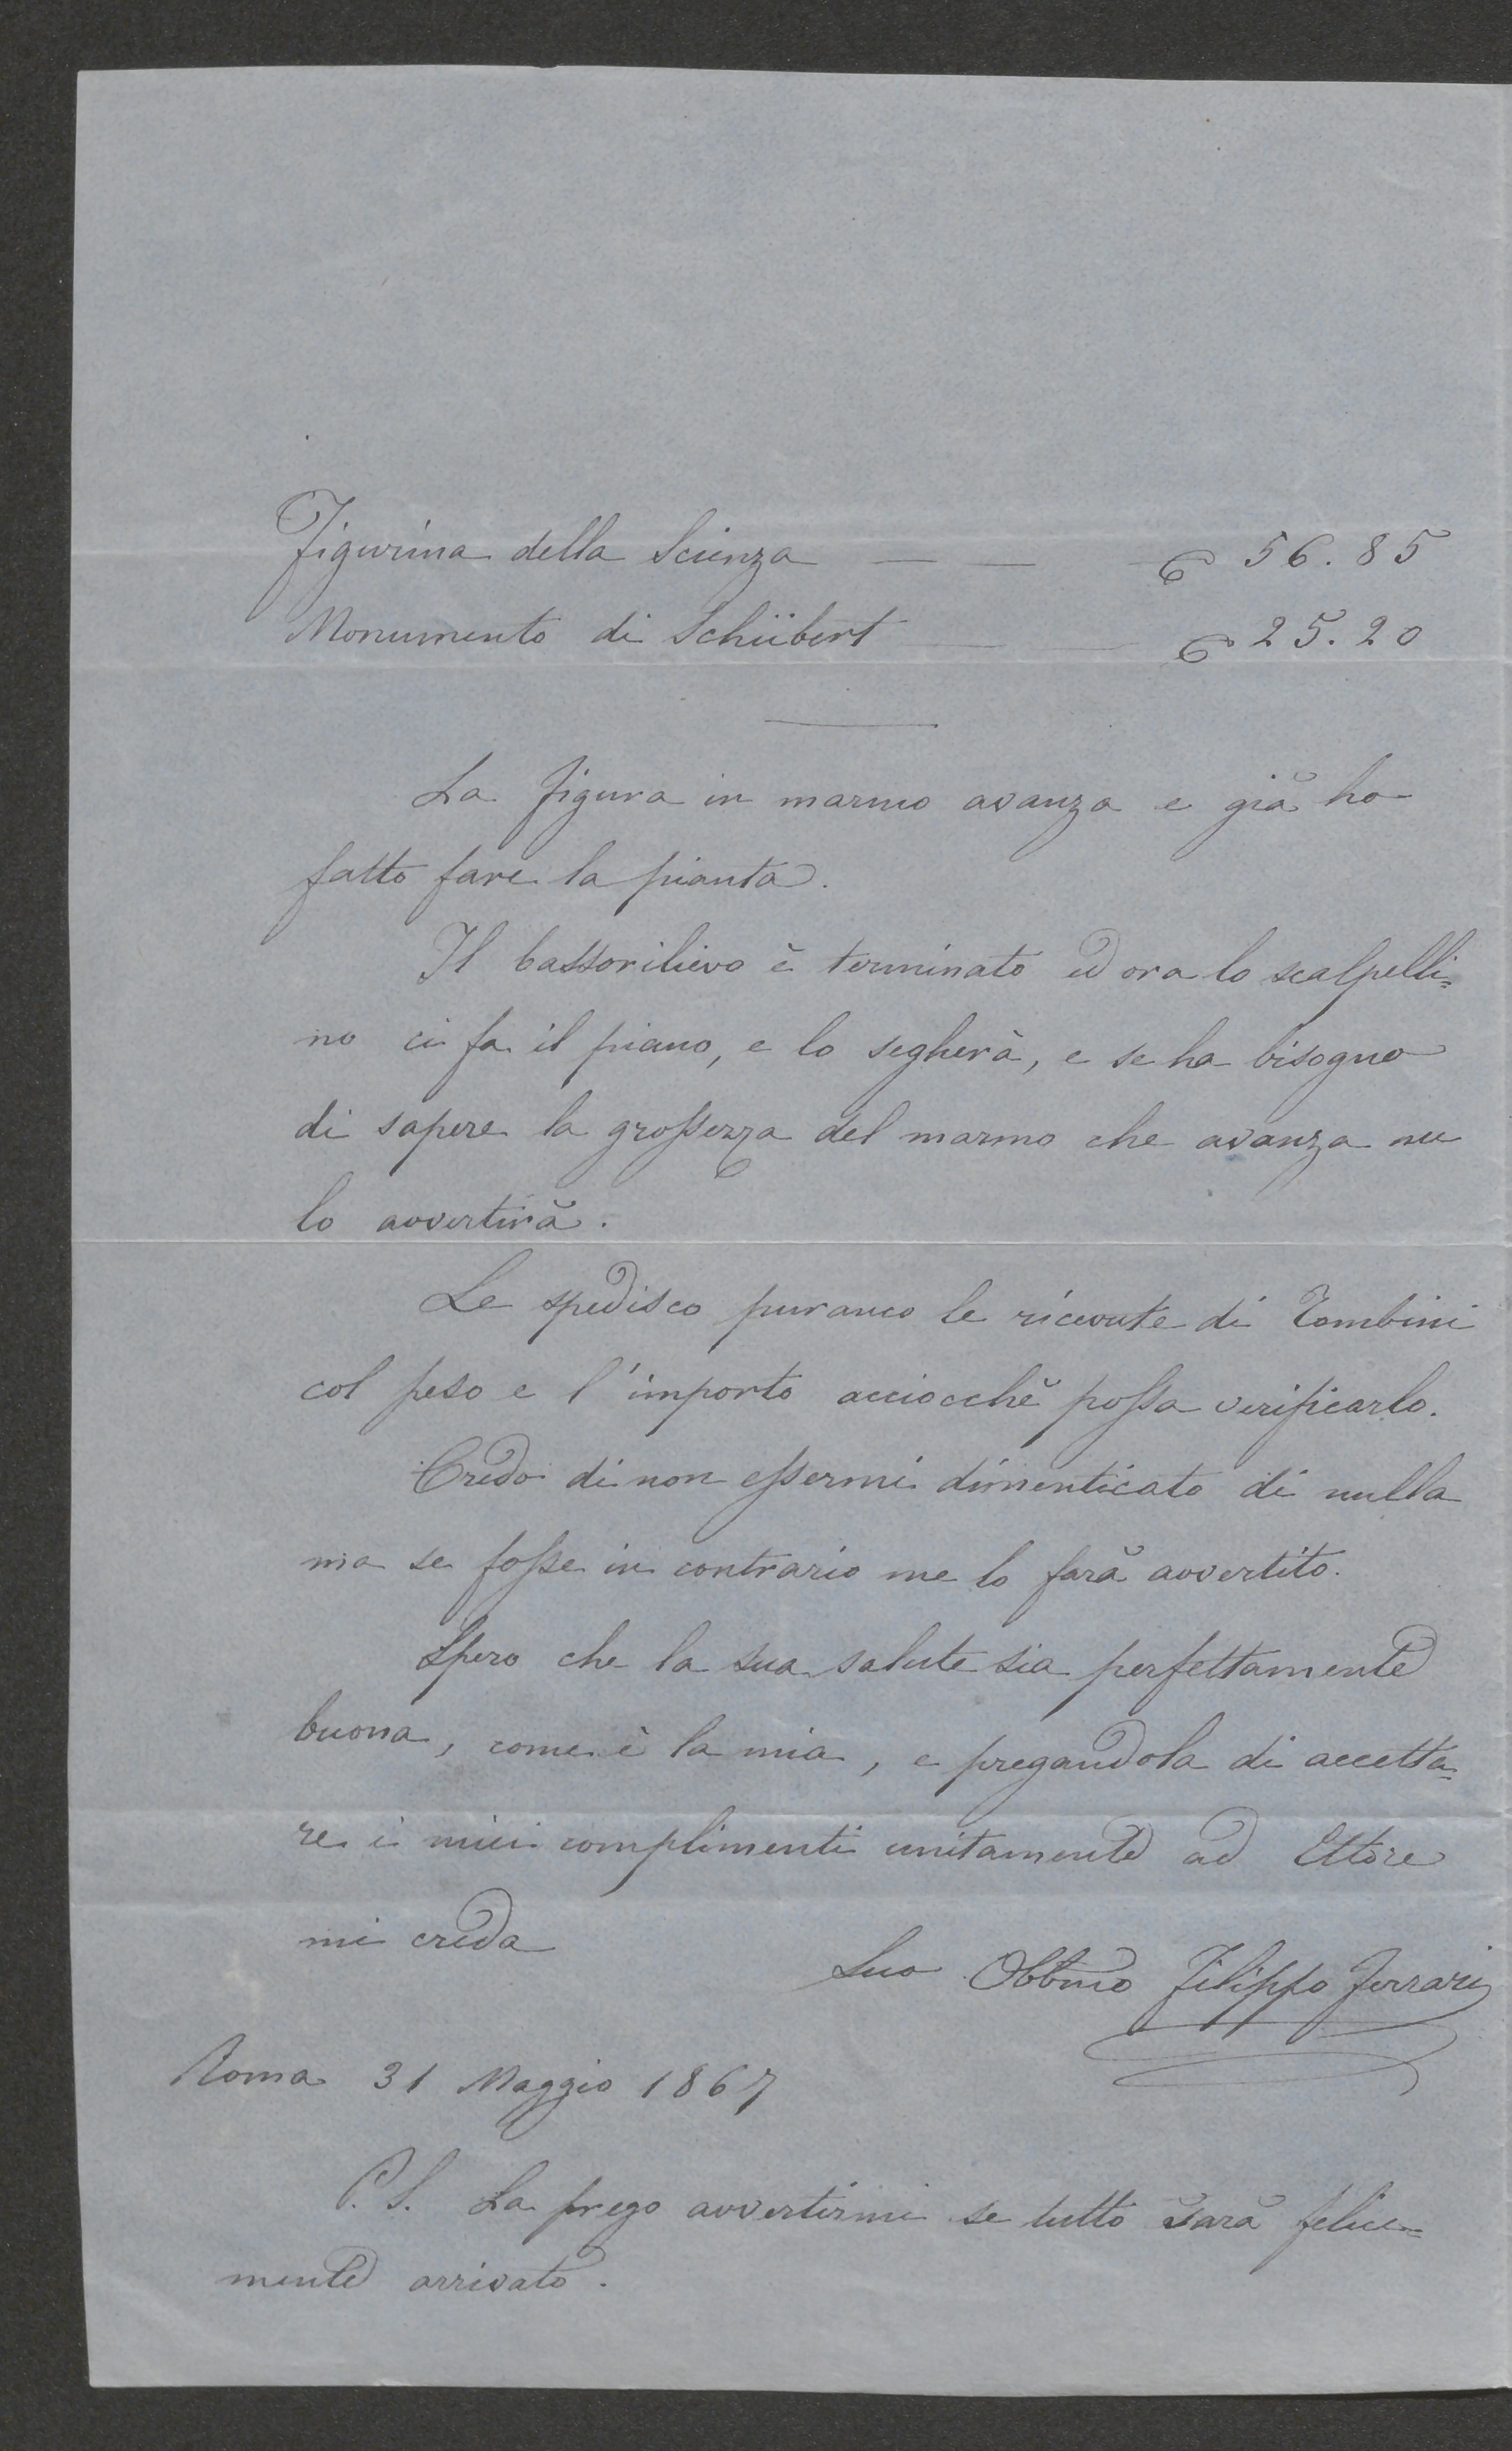 Figurina della Scienza — — 56.85
Monumento di Schübert — — 25.20
La figura in marmo avanza e già ho
fatto fare la pianta.
Il bassorilievo è terminato ed ora lo scalpelli=
no ci fa il piano, e lo segherà, e se ha bisogno
di sapere la grossezza del marmo che avanza me
lo avvertirà.
Le spedisco puranco le ricevute di Tombini
col peso e l'importo acciocchè possa verificarlo.
Credo di non essermi dimenticato di nulla
ma se fosse in contrario me lo farà avvertito.
Spero che la sua salute sia perfettamente
buona, come è la mia, e pregandola di accetta=
re i miei complimenti unitamente ad Ettore
mi creda
Suo Obbmo Filippo Ferrari
Roma 31 Maggio 1867
P.S. La prego avvertirmi se tutto sarà felice=
mente arrivato.